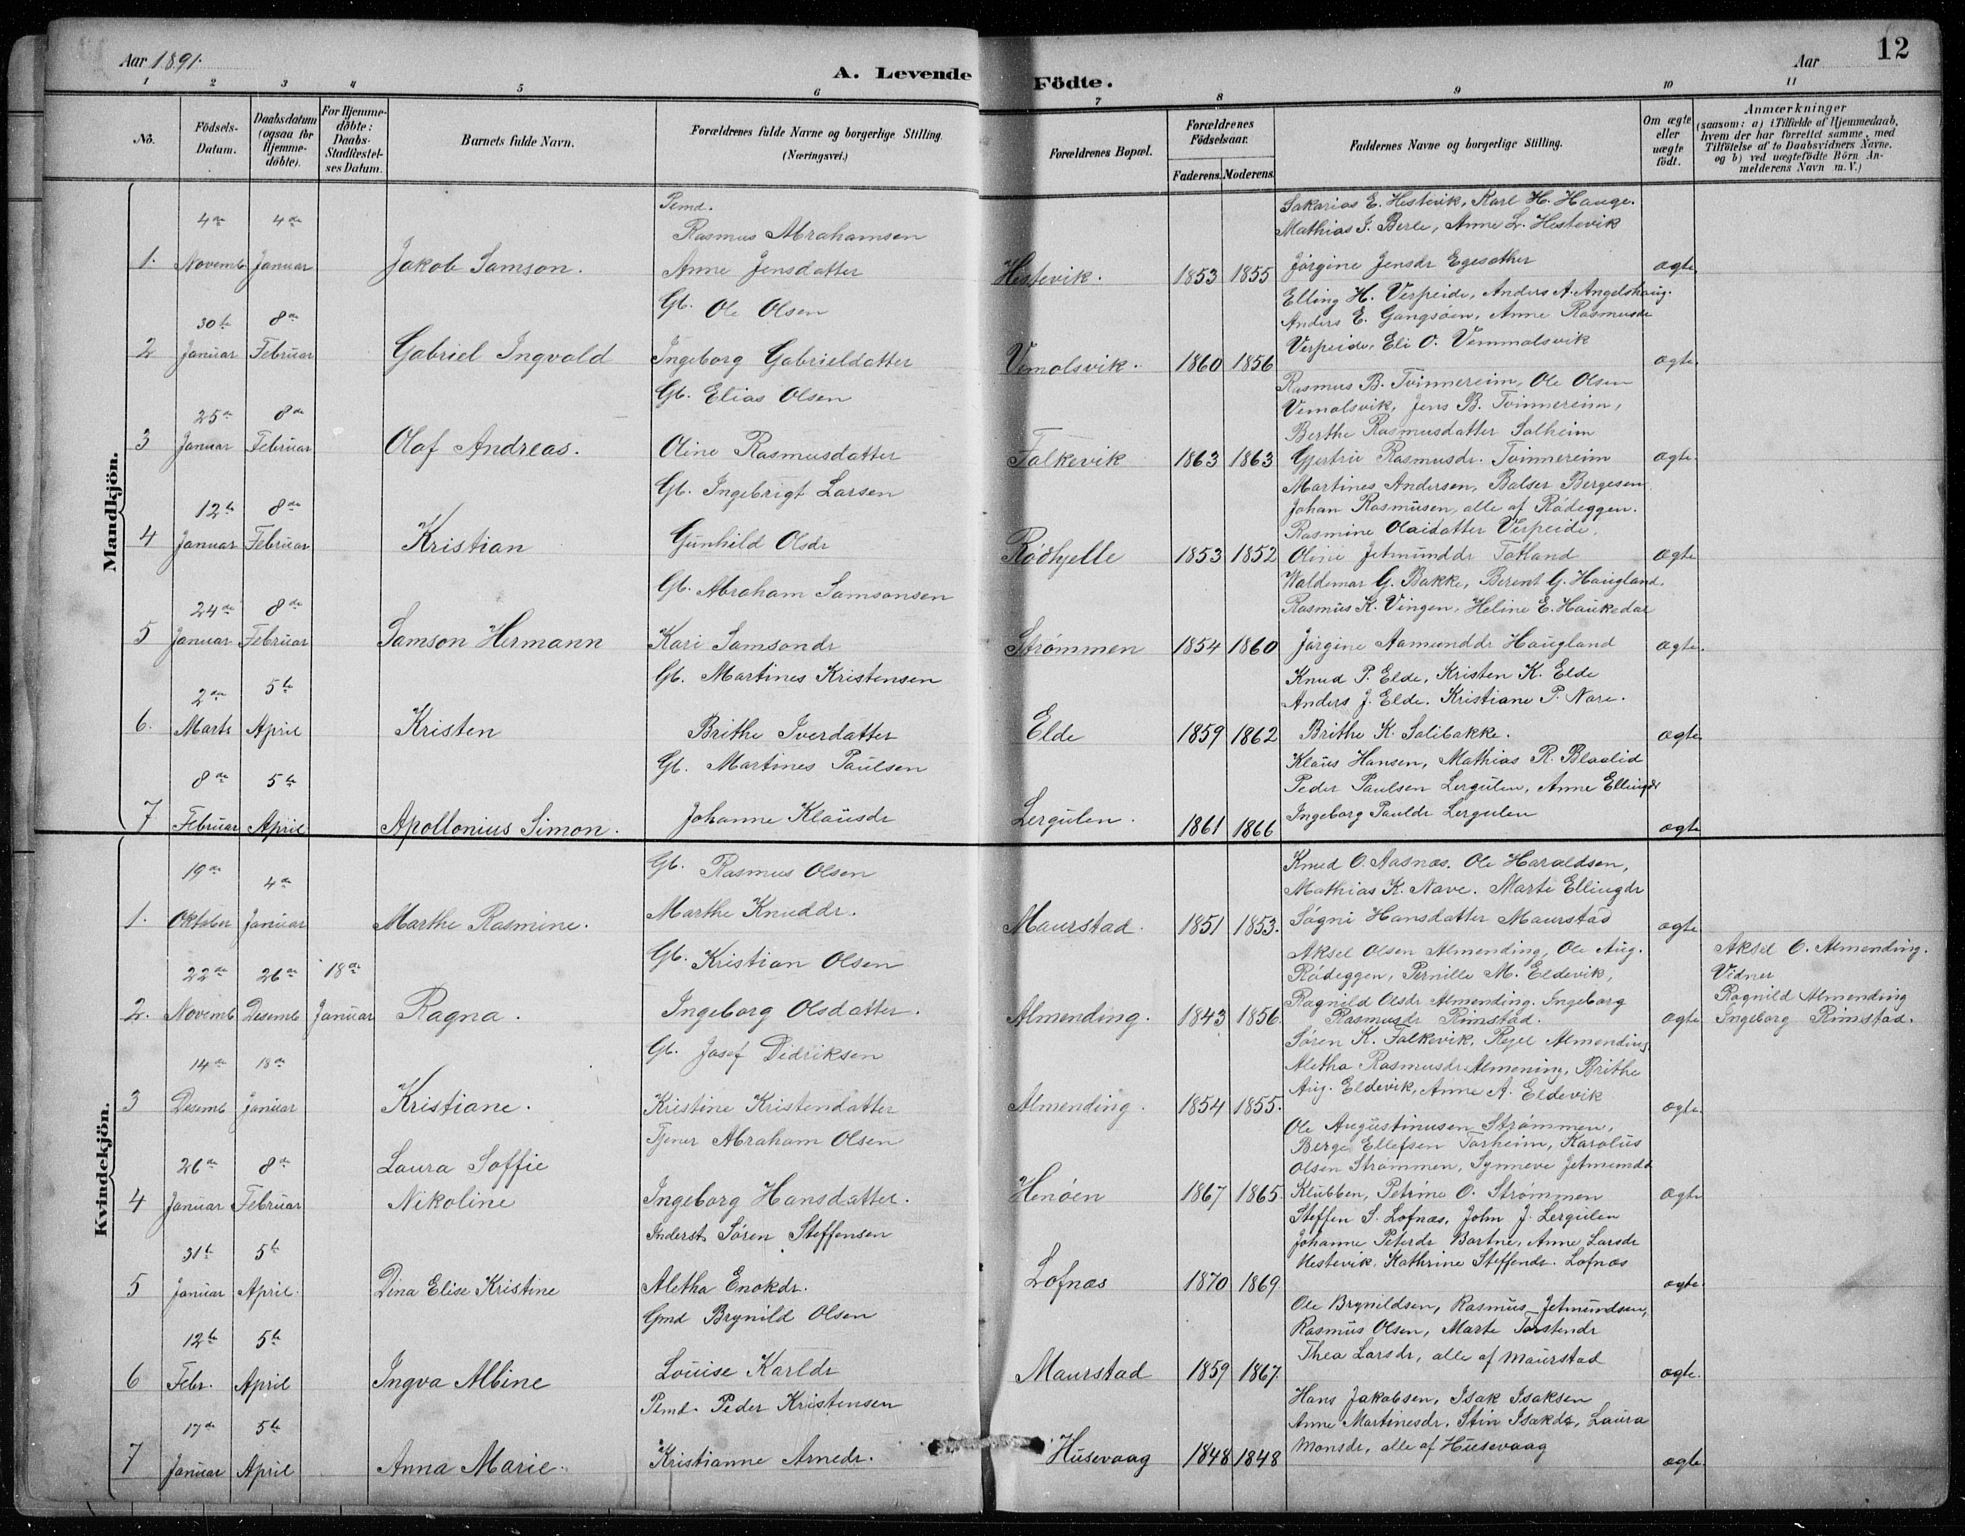 Aar 1891.
A. Levende Födte.
Aar
12
1 2 3 4 5 6 7 8 9 10 11
No.
Födsels-Datum.
Daabsdatum (ogsaa för Hjemme-döbte).
For Hjemme-döbte: Daabs-Stadfæstel-ses Datum.
Barnets fulde Navn.
Forældrenes fulde Navne og borgerlige Stilling.
(Næringsvei.)
Forældrenes Bopæl.
Forældrenes Födselsaar.
Faderens. Moderens.
Faddernes Navne og borgerlige Stilling.
Om ægte eller uægte födt.
Anmærkninger
(saasom: a) i Tilfælde af Hjemmedaab, hvem der har forrettet samme, med Tilföielse af to Daabsvidners Navne. og b) ved uægtefödte Börn An-melderens Navn m.V.)
Mandkjön.
4de 4de Pmd. Sakarias E. Hestevik, Karl H. Hauge.
Rasmus Abrahamsen Mathias J. Berle, Anne L. Hestevik
1. Novemb Januar Jakob Samson. Anne Jensdatter Hestevik. 1853 1855 Jørgine Jensdr Egesæther ægte
30te 8de Gb. Ole Olsen Elling H. Verpeide, Anders A. Angelshaug.
Anders E. Gangsøen, Anne Rasmusdr
2 Januar Februar Gabriel Ingvald Ingeborg Gabrieldatter Vemolsvik. 1860 1856 Verpeide, Eli O. Vemmolsvik ægte
25de 8de Gb. Elias Olsen Rasmus B. Tvinnereim, Ole Olsen
Vemolsvik, Jens B. Tvinnereim,
Berthe Rasmusdatter Solheim
3 Januar Februar Olaf Andreas. Oline Rasmusdatter Falkevik 1863 1863 Gjertrü Rasmusdr. Tvinnereim ægte
12te 8de Gb. Ingebrigt Larsen Martines Andersen, Balser Bergesen
Johan Rasmusen, alle af Rødeggen.
Rasmine Olaidatter Verpeide,
4 Januar Februar Kristian Gunhild Olsdr Rødhjelle 1853 1852 Oline Jetmunddr Totland ægte
24de 8de Gb. Abraham Samsonsen Waldemar G. Bakke, Berent G. Haugland.
Rasmus K. Vingen, Heline E. Haukedal
5 Januar Februar Samson Hermann Kari Samsondr Strømmen 1854 1860 Jørgine Aamunddr Haugland ægte.
2de 5te Gb. Martines Kristensen Knud P. Elde, Kristen K. Elde
Anders J. Elde. Kristiane P. Nave.
6. Marts April Kristen Brithe Iverdatter Elde 1859 1862 Brithe K. Salibakke. ægte
8de 5te Gb. Martines Paulsen Klaus Hansen, Mathias R. Blaalid
Peder Paulsen Lergulen, Anne Ellingdr
7 Februar April Apollonius Simon. Johanne Klausdr Lergulen. 1861 1866 Ingeborg Pauldr Lergulen ægte
Kvindekjön.
19de 4de Gb. Rasmus Olsen Knud O. Aasnæs. Ole Haraldsen,
Mathias K. Nave. Marte Ellingdr
1. Oktober Januar Marthe Rasmine. Marthe Knuddr. Maurstad. 1851 1853. Søgni Hansdatter Maurstad ægte
22de 26de 18de Gb. Kristian Olsen Aksel Olsen Almending, Ole Aug. Aksel O. Almending.
Rødeggen, Pernille M. Eldevik, Vidner
Ragnild Olsdr Almending. Ingeborg Ragnild Almending
2. Novemb Desemb Januar Ragna. Ingeborg Olsdatter. Almending. 1843 1856. Rasmusdr Rimstad. ægte Ingeborg Rimstad.
14de 18de Gb. Josef Didriksen Søren K. Falkevik, Rejel Almending,
Aletha Rasmusdr Almening, Brithe
3 Desemb Januar Kristiane. Kristine Kristendatter Almending. 1854 1855. Aug. Eldevik, Anne A. Eldevik ægte
Tjener Abraham Olsen Ole Augustinusen Strømmen,
Berge Ellefsen Torheim, Karolus
26de 8de Laura Soffie Olsen Strømmen, Synneve Jetmundd
4 Januar Februar Nikoline Ingeborg Hansdatter. Henöen 1867 1865. Klubben, Petrine O. Strømmen ægte
31te 5te Inderst Søren Steffensen Steffen S. Lofnæs, John J. Lergulen
Johanne Peterdr Bortne, Anne Larsdr
Hestevik, Kathrine Steffendr. Lofnæs
5 Januar April. Dina Elise Kristine Aletha Enokdr. Lofnæs 1870 1869. ægte
12te 5te Gmd Brynild Olsen Ole Brynildsen, Rasmus Jetmundsen,
Rasmus Olsen, Marte Torstendr
6 Febr. April Ingva Albine Louise Karldr Maurstad 1859 1867. Thea Larsdr, alle af Maurstad ægte.
17de 5te Pmd. Peder Kristensen Hans Jakobsen, Isak Isaksen
Anne Martinesdr, Stin Isakdr, Laura
7 Januar April Anna Marie. Kristianne Arnedr. Husevaag 1848 1848 Monsdr, alle af Husevaag ægte